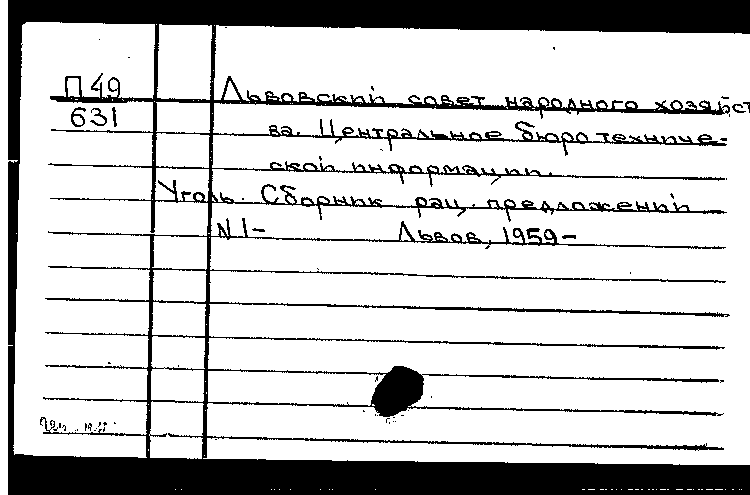 П 49
631
Львовский совет народного хозяйст
ва. Центральное бюро техниче-
ской информации.
Уголь. Сборник рац. предложений
N 1-   Львов, 1959-